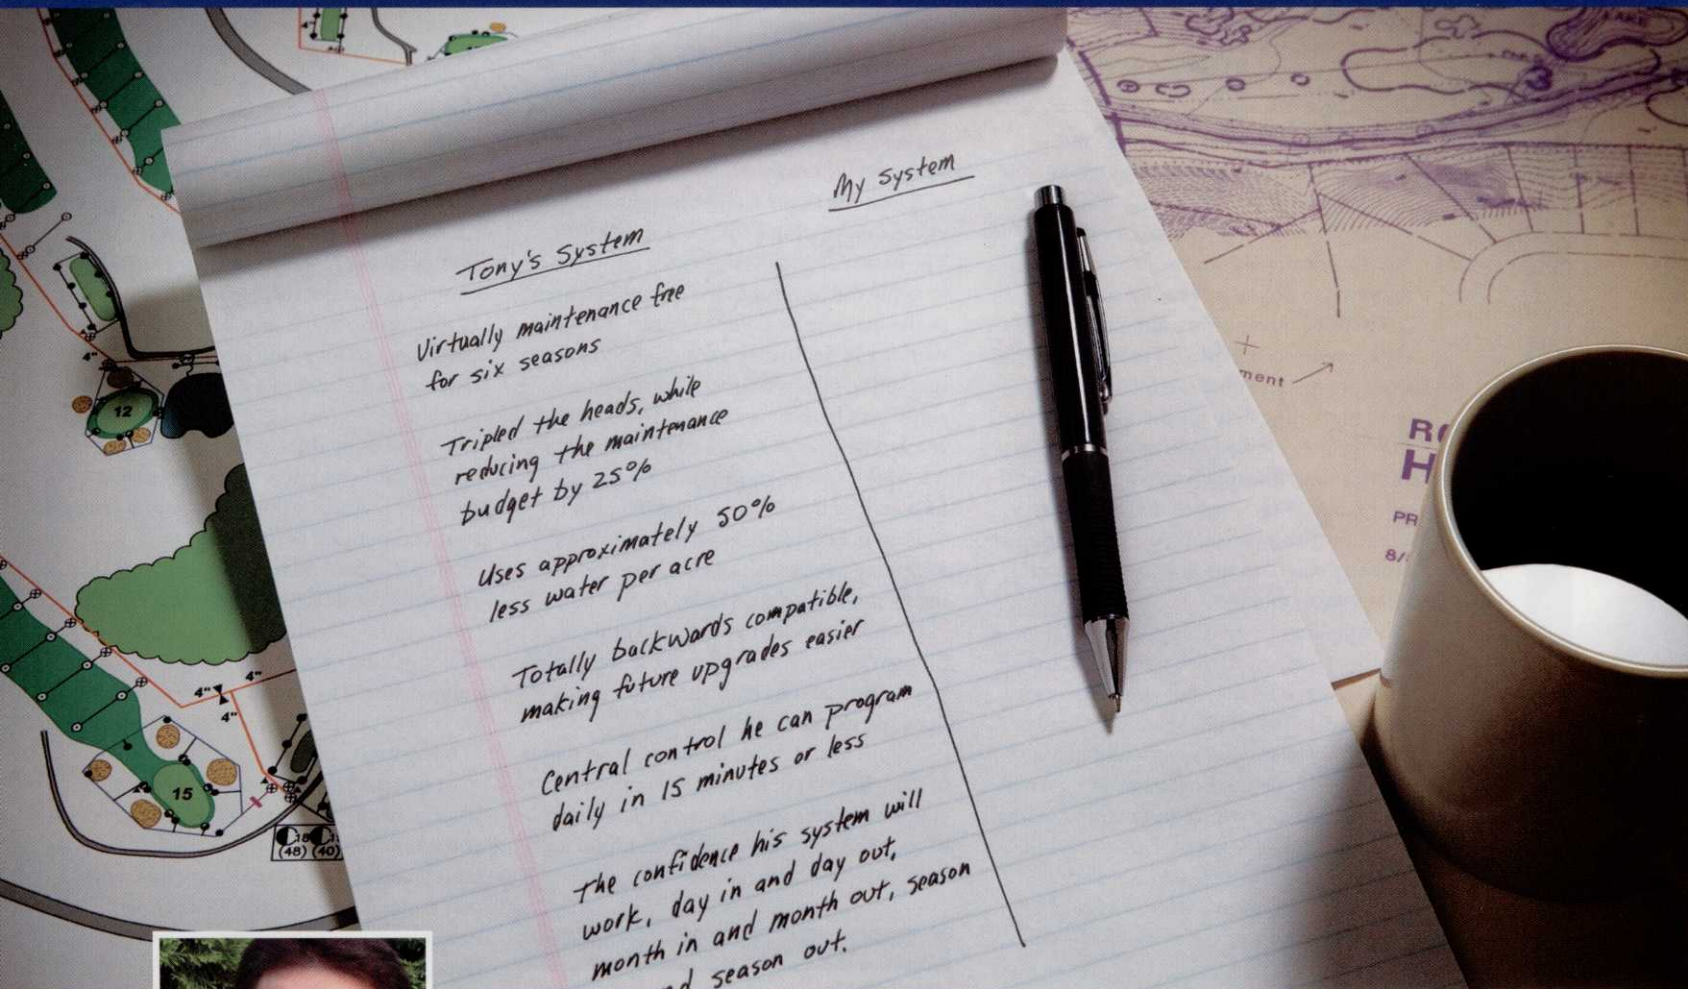 My System
Tony's System
Virtually maintenance free
for six seasons
Tripled the heads, while
reducing the maintenance
budget by 25%
Uses approximately 50%
less water per acre
Totally backwards compatible,
making future upgrades easier
Central control he can program
daily in 15 minutes or less
The confidence his system will
work, day in and day out,
month in and month out, season
season out.
4"
12
4" 4"
4"
15
(48) (40)
3